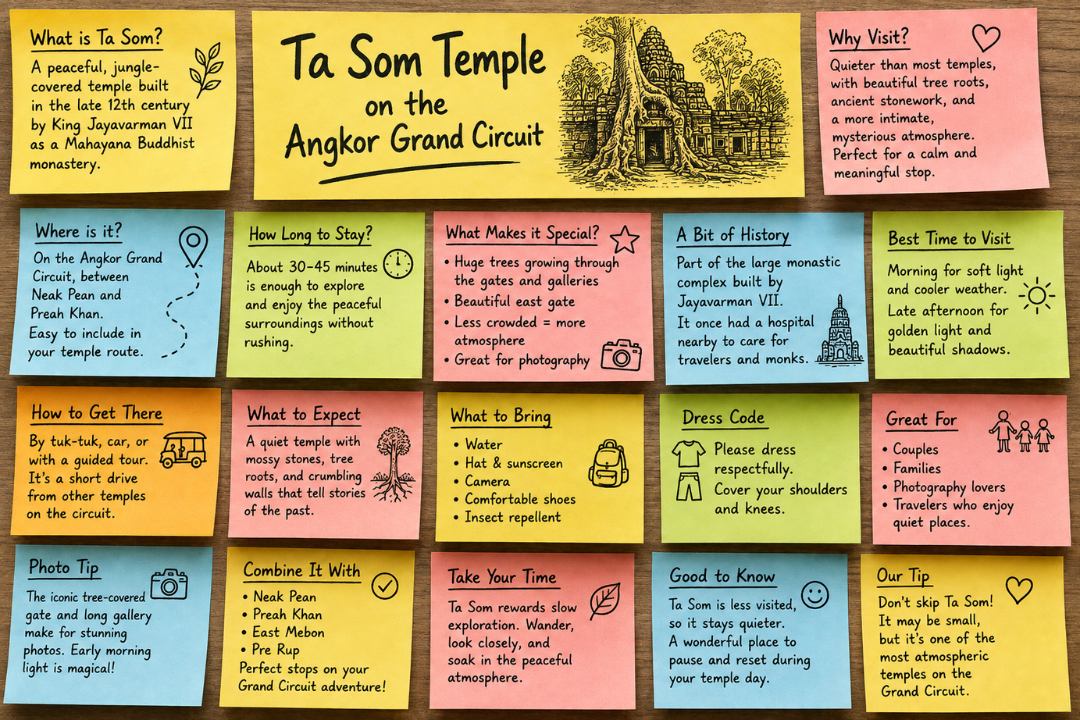 What is Ta Som?
A peaceful, jungle-
covered temple built
in the late 12th century
by King Jayavarman VII
as a Mahayana Buddhist
monastery.
Ta Som Temple
on the
Angkor Grand Circuit
Why Visit?
Quieter than most temples,
with beautiful tree roots,
ancient stonework, and
a more intimate,
mysterious atmosphere.
Perfect for a calm and
meaningful stop.
Where is it?
On the Angkor Grand
Circuit, between
Neak Pean and
Preah Khan.
Easy to include in
your temple route.
How Long to Stay?
About 30-45 minutes
is enough to explore
and enjoy the peaceful
surroundings without
rushing.
What Makes it Special?
• Huge trees growing through
the gates and galleries
• Beautiful east gate
• Less crowded = more
atmosphere
• Great for photography
A Bit of History
Part of the large monastic
complex built by
Jayavarman VII.
It once had a hospital
nearby to care for
travelers and monks.
Best Time to Visit
Morning for soft light
and cooler weather.
Late afternoon for
golden light and
beautiful shadows.
How to Get There
By tuk-tuk, car, or
with a guided tour.
It's a short drive
from other temples
on the circuit.
What to Expect
A quiet temple with
mossy stones, tree
roots, and crumbling
walls that tell stories
of the past.
What to Bring
• Water
• Hat & sunscreen
• Camera
• Comfortable shoes
• Insect repellent
Dress Code
Please dress
respectfully.
Cover your shoulders
and knees.
Great For
• Couples
• Families
• Photography lovers
• Travelers who enjoy
quiet places.
Photo Tip
The iconic tree-covered
gate and long gallery
make for stunning
photos. Early morning
light is magical!
Combine It With
• Neak Pean
• Preah Khan
• East Mebon
• Pre Rup
Perfect stops on your
Grand Circuit adventure!
Take Your Time
Ta Som rewards slow
exploration. Wander,
look closely, and
soak in the peaceful
atmosphere.
Good to Know
Ta Som is less visited,
so it stays quieter.
A wonderful place to
pause and reset during
your temple day.
Our Tip
Don't skip Ta Som!
It may be small,
but it's one of the
most atmospheric
temples on the
Grand Circuit.